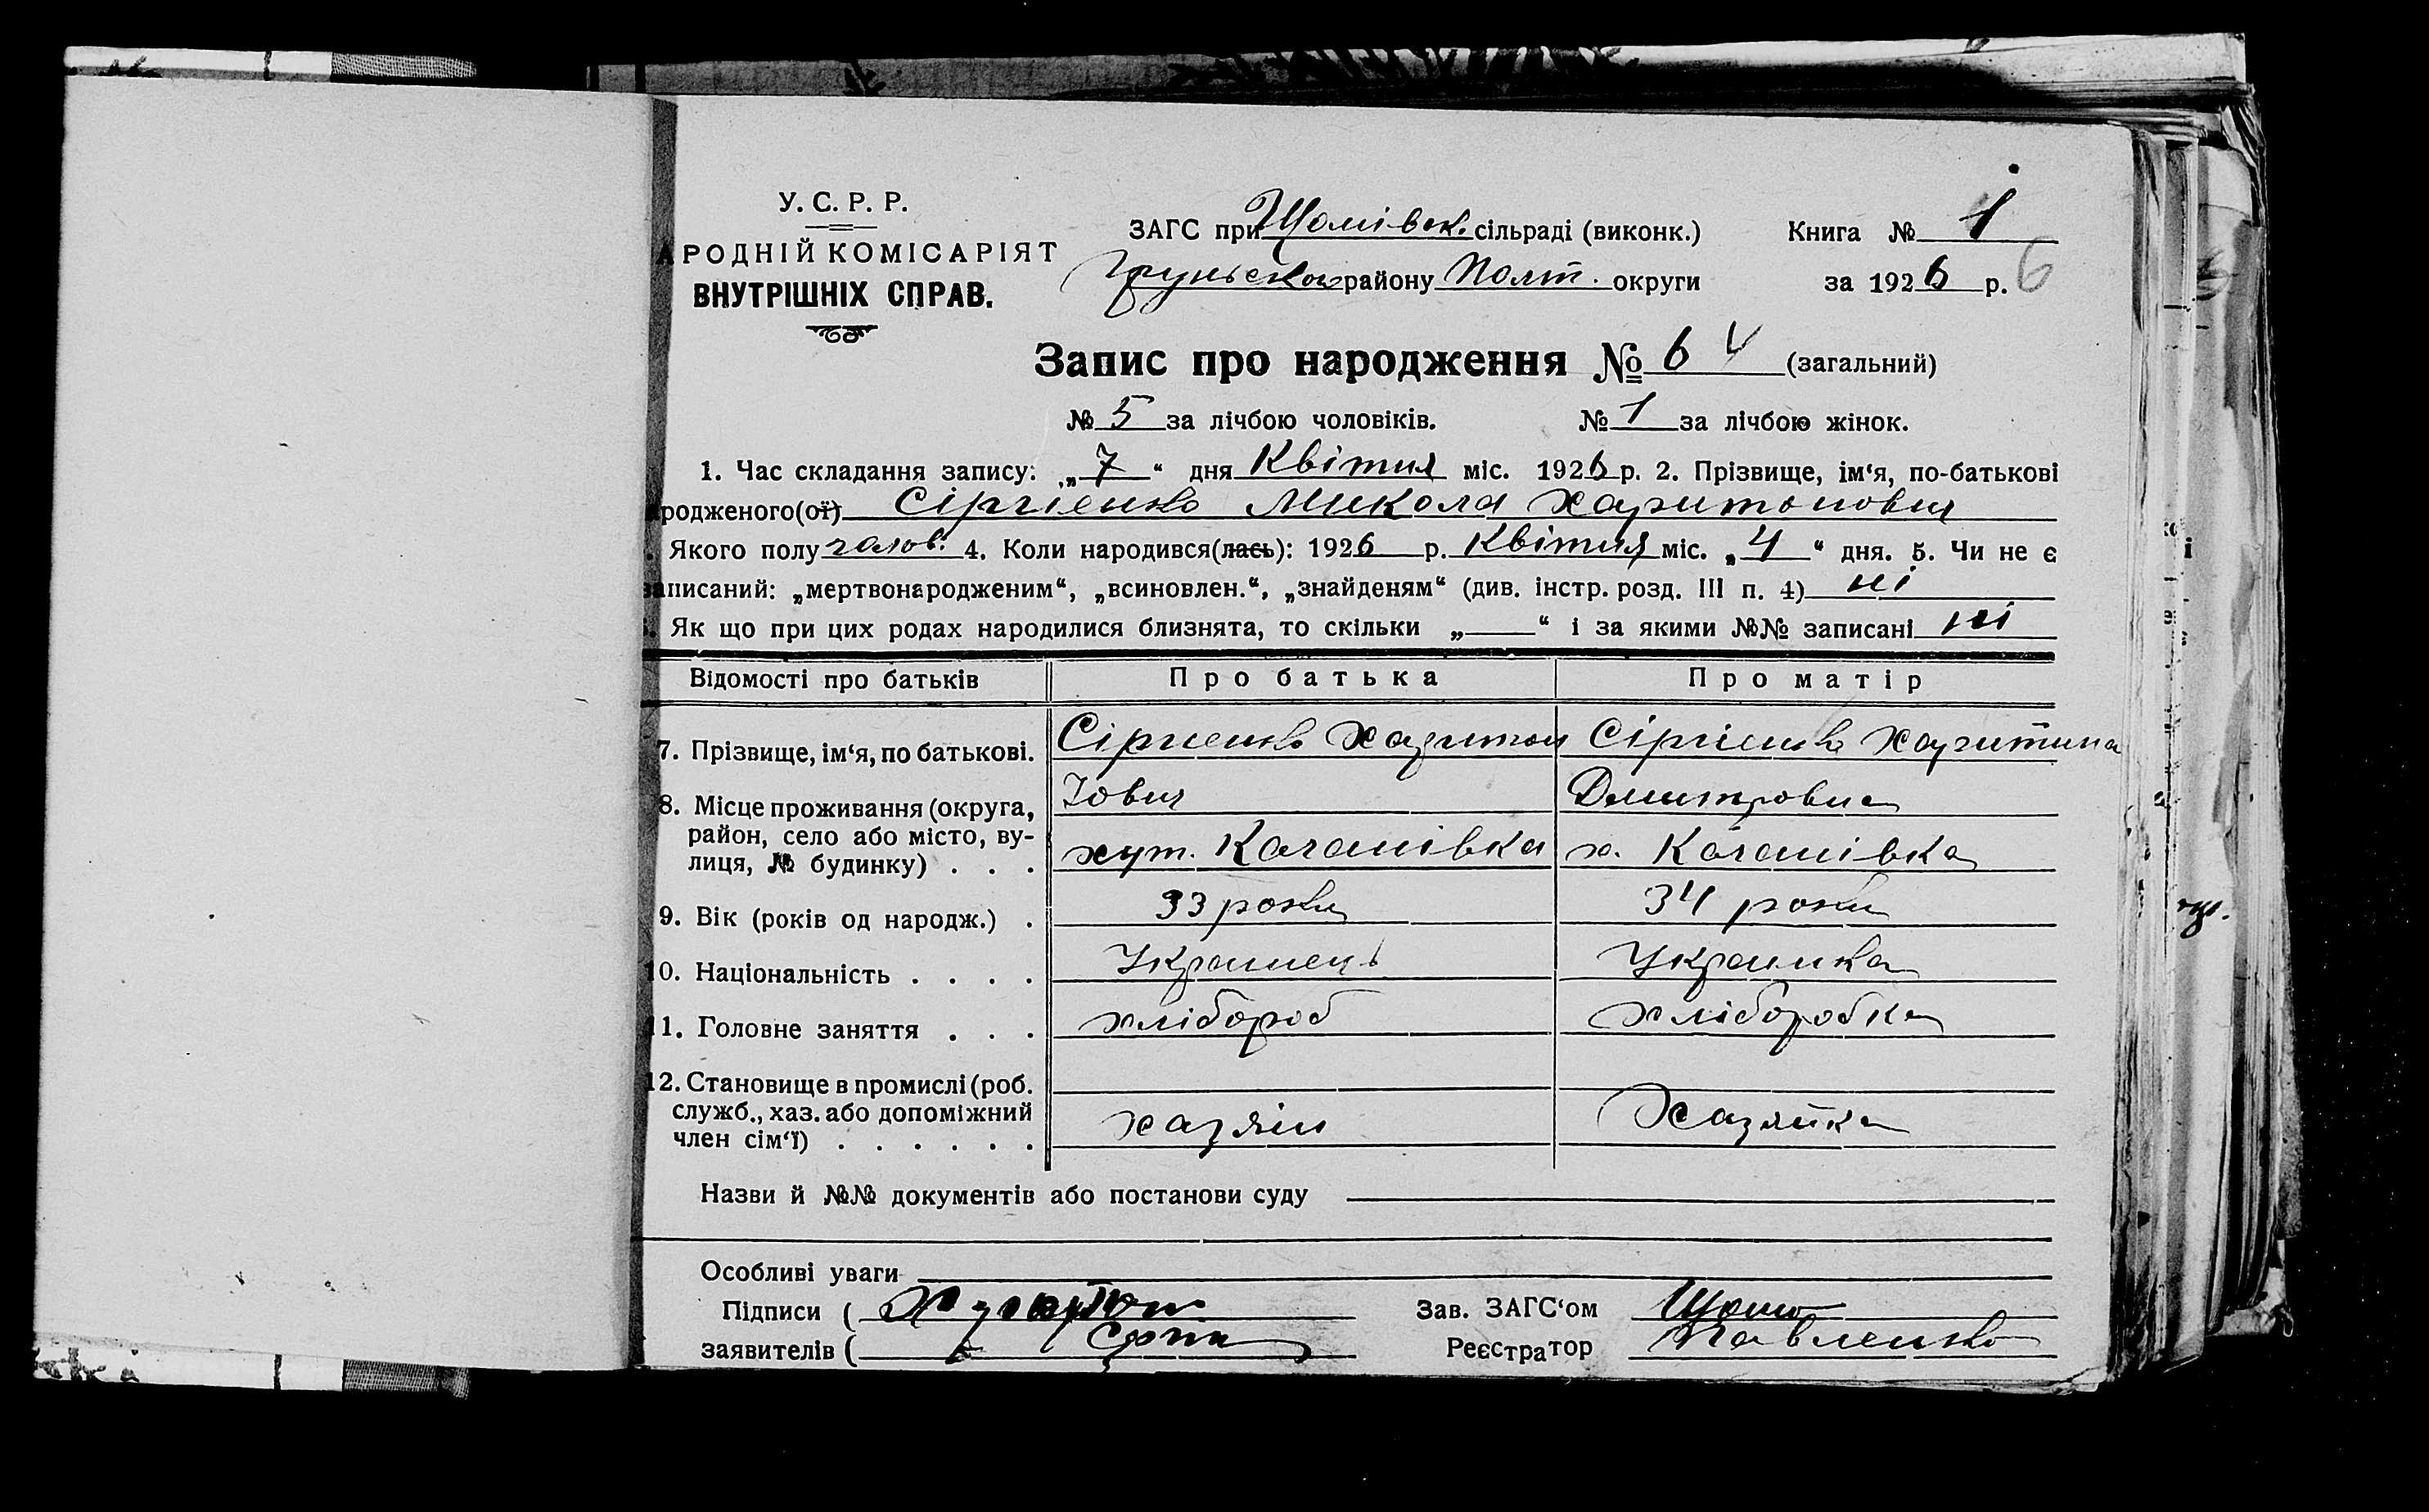 У. С. Р. Р.
АРОДНІЙ КОМІСАРІЯТ
ВНУТРІШНІХ СПРАВ.
ЗАГС при Щомівськ. сільраді (виконк.) Книга № 1
Груньського району Полт. округи за 1926 р. 6
Запис про народження № 6 4 (загальний)
№ 5 за лічбою чоловіків. № 1 за лічбою жінок.
1. Час складання запису: „7“ дня Квітня міс. 1926 р. 2. Прізвище, ім‘я, по-батькові
родженого(ої) Сіргіенко Микола Харитонович
Якого полу чолов. 4. Коли народився(лась): 1926 р. Квітня міс. „4“ дня. 5. Чи не є
аписаний: „мертвонародженим“, „всиновлен.“, „знайденям“ (див. інстр. розд. III п. 4) ні
Як що при цих родах народилися близнята, то скільки „ “ і за якими №№ записані ні
Відомості про батьків Про батька Про матір
7. Прізвище, ім‘я, по батькові. Сіргиенко Харитон Сіргіенко Харитина
Іович Дмитровна
8. Місце проживання (округа,
район, село або місто, ву-
лиця, № будинку) . . . хут. Качанівка х. Качанівка
9. Вік (років од народж.) . 33 роки 34 роки
10. Національність . . . . Украінець Украінка
11. Головне заняття . . . хлібороб хліборобка
12. Становище в промислі (роб.
служб., хаз. або допоміжний
член сім‘ї) . . . . . . хазяін Хазяйка
Назви й №№ документів або постанови суду
Особливі уваги
Підписи ( Зав. ЗАГС‘ом
заявителів ( Реєстратор Павленко